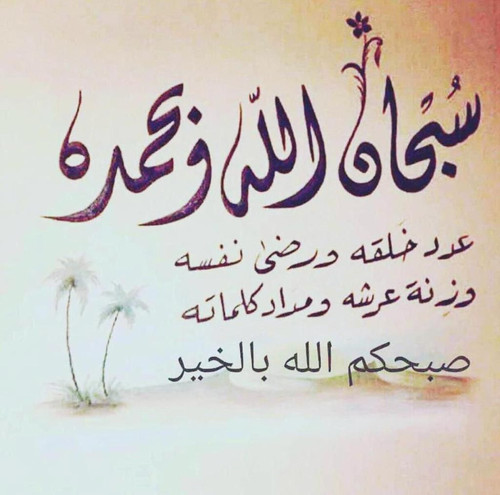 سُبْحان اللّه وبحمده
عدد خَلقه ورضىٰ نفسه
وزِنة عرشه ومداد كلماته
صبحكم الله بالخير